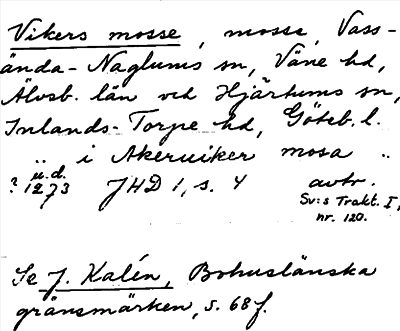 Vikers mosse, mosse, Vass-
ända-Naglums sn, Väne hd,
Älvsb. län och Hjärtums sn,
Inlands-Torpe hd, Göteb. l.
„ i Akeruiker mosa „
u.d.
? 1273 JHD 1, s. 4 avtr.
Sv:s Trakt. I,
nr. 120.
Se J. Kalén, Bohuslänska
gränsmärken, s. 68 f.